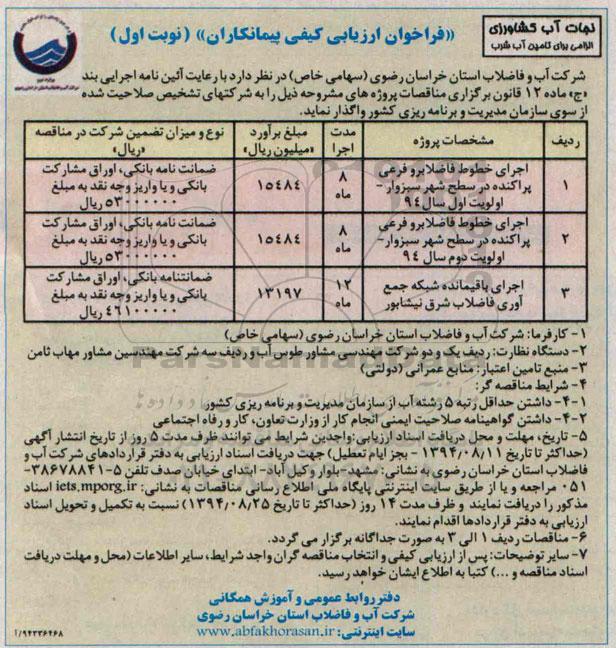 نجات آب کشاورزی
الزامی برای تامین آب شرب
«فراخوان ارزیابی کیفی پیمانکاران» (نوبت اول)
شرکت آب و فاضلاب استان خراسان رضوی (سهامی خاص) در نظر دارد با رعایت آئین نامه اجرایی بند
«ج» ماده ۱۲ قانون برگزاری مناقصات پروژه های مشروحه ذیل را به شرکتهای تشخیص صلاحیت شده
از سوی سازمان مدیریت و برنامه ریزی کشور واگذار نماید.
ردیف
مشخصات پروژه
مدت
اجرا
مبلغ برآورد
«میلیون ریال»
نوع و میزان تضمین شرکت در مناقصه
«ریال»
۱
اجرای خطوط فاضلابرو فرعی
پراکنده در سطح شهر سبزوار -
اولویت اول سال ۹۴
۸
ماه
۱۵۴۸۴
ضمانت نامه بانکی، اوراق مشارکت
بانکی و یا واریز وجه نقد به مبلغ
۵۳۰۰۰۰۰۰۰ ریال
۲
اجرای خطوط فاضلابرو فرعی
پراکنده در سطح شهر سبزوار-
اولویت دوم سال ۹۴
۸
ماه
۱۵۴۸۴
ضمانت نامه بانکی، اوراق مشارکت
بانکی و یا واریز وجه نقد به مبلغ
۵۳۰۰۰۰۰۰۰ ریال
۳
اجرای باقیمانده شبکه جمع
آوری فاضلاب شرق نیشابور
۱۲
ماه
۱۳۱۹۷
ضمانتنامه بانکی، اوراق مشارکت
بانکی و یا واریز وجه نقد به مبلغ
۴۶۱۰۰۰۰۰۰ ریال
۱- کارفرما: شرکت آب و فاضلاب استان خراسان رضوی (سهامی خاص)
۲- دستگاه نظارت: ردیف یک و دو شرکت مهندسی مشاور طوس آب و ردیف سه شرکت مهندسین مشاور مهاب ثامن
۳- منبع تامین اعتبار: منابع عمرانی (دولتی)
۴- شرایط مناقصه گر:
۴-۱- داشتن حداقل رتبه ۵ رشته آب از سازمان مدیریت و برنامه ریزی کشور
۴-۲- داشتن گواهینامه صلاحیت ایمنی انجام کار از وزارت تعاون، کار و رفاه اجتماعی
۵- تاریخ، مهلت و محل دریافت اسناد ارزیابی:واجدین شرایط می توانند ظرف مدت ۵ روز از تاریخ انتشار آگهی
(حداکثر تا تاریخ ۱۳۹۴/۰۸/۱۱ - بجز ایام تعطیل) جهت دریافت اسناد ارزیابی به دفتر قراردادهای شرکت آب و
فاضلاب استان خراسان رضوی به نشانی: مشهد- بلوار وکیل آباد- ابتدای خیابان صدف تلفن ۵-۳۸۶۷۸۸۴۱-
۰۵۱ مراجعه و یا از طریق سایت اینترنتی پایگاه ملی اطلاع رسانی مناقصات به نشانی: iets.mporg.ir اسناد
مذکور را دریافت نمایند و ظرف مدت ۱۴ روز (حداکثر تا تاریخ ۱۳۹۴/۰۸/۲۵) نسبت به تکمیل و تحویل اسناد
ارزیابی به دفتر قراردادها اقدام نمایند.
۶- مناقصات ردیف ۱ الی ۳ به صورت جداگانه برگزار می گردد.
۷- سایر توضیحات: پس از ارزیابی کیفی و انتخاب مناقصه گران واجد شرایط، سایر اطلاعات (محل و مهلت دریافت
اسناد مناقصه و ...) کتبا به اطلاع ایشان خواهد رسید.
دفتر روابط عمومی و آموزش همگانی
شرکت آب و فاضلاب استان خراسان رضوی
سایت اینترنتی: www.abfakhorasan.ir
۱/۹۴۳۳۶۴۶۸